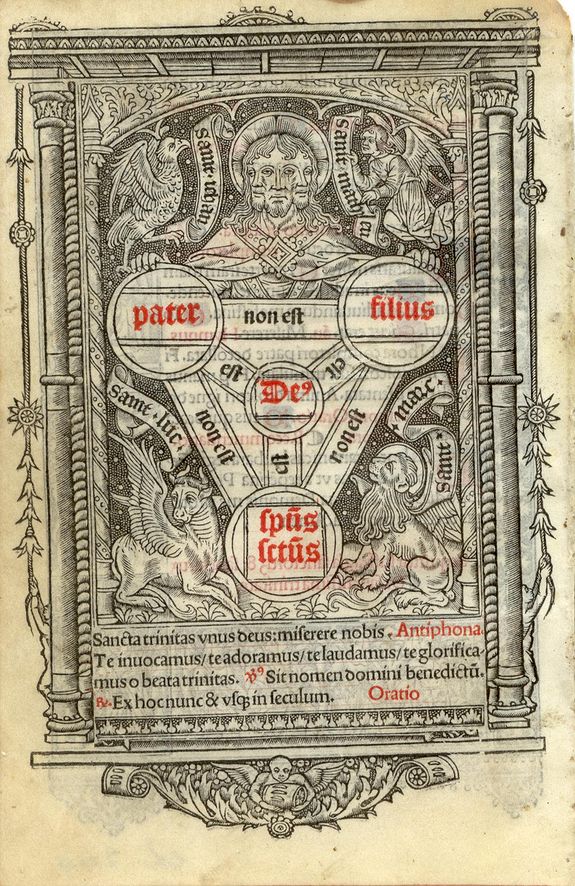 sanct
sanct
pater non est filius
est
est
De⁹
sanct luc
marc
sanct
non est
est
non est
spūs
sctūs
Sancta trinitas vnus deus: miserere nobis. Antiphona.
Te inuocamus/te adoramus/te laudamus/te glorifica
mus o beata trinitas. ℣⁹ Sit nomen domini benedictū.
℟. Ex hoc nunc & vsq; in seculum. Oratio